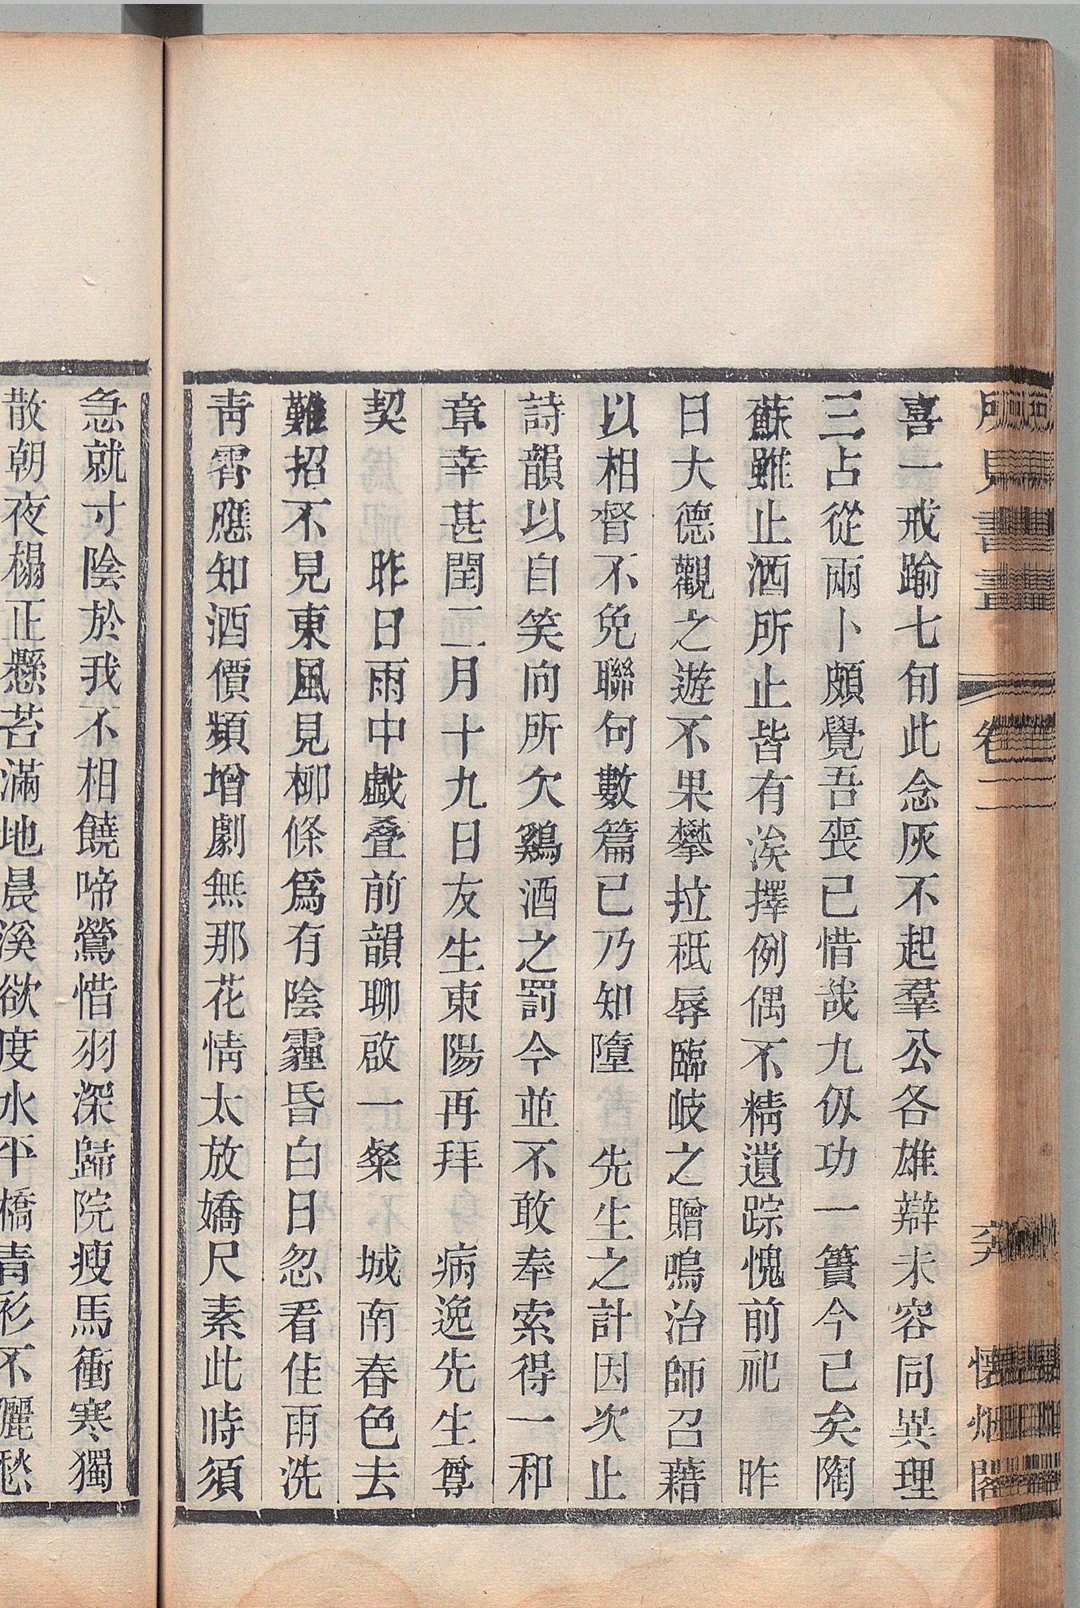 所見書畫
卷二
懷烟閣
喜一戒踰七旬此念灰不起羣公各雄辯未容同異理
三占從兩卜頗覺吾喪已惜哉九仞功一簣今已矣陶
蘇雖止酒所止皆有涘擇例偶不精遺踪愧前祀　昨
日大德觀之遊不果攀拉秪辱臨岐之贈鳴治師召藉
以相督不免聯句數篇已乃知墮　先生之計因次止
詩韻以自笑向所欠鷄酒之罰今並不敢奉索得一和
章幸甚閏二月十九日友生東陽再拜　病逸先生尊
契　　昨日雨中戲叠前韻聊啟一粲　城南春色去
難招不見東風見柳條爲有陰霾昏白日忽看佳雨洗
靑霄應知酒價頻增劇無那花情太放嬌尺素此時須
急就寸陰於我不相饒啼鶯惜羽深歸院瘦馬衝寒獨
散朝夜榻正懸苔滿地晨溪欲度水平橋青衫不儷愁